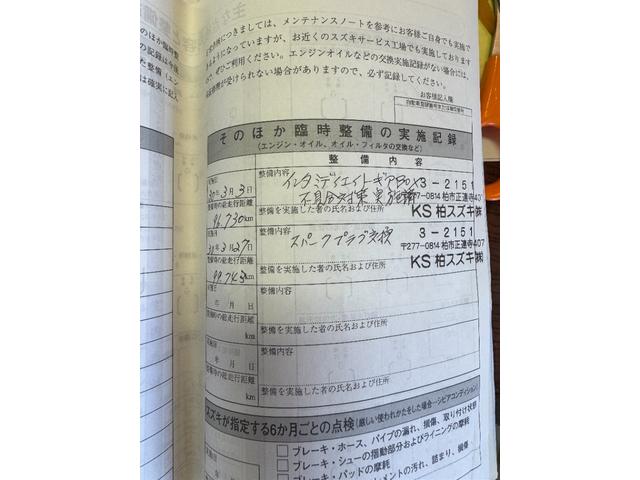 きるようになっていますが、お近くのスズキサービス工場でも実施しております
ぜひご利用ください。エンジンオイルなどの交換実施記録がない場合には、
修理が受けられない場合がありますので、必ず記録してください。
お客様記入欄
そのほか臨時整備の実施記録
(エンジン・オイル、オイル・フィルタの交換など)
整備内容
整備内容
インタミディエイトギアBOX
不具合対策実施済
30年3月3日
整備時の総走行距離
96,730km
整備を実施した者の氏名および住所
3-2151
〒277-0814 柏市正連寺407
KS 柏スズキ㈱
整備内容
スパークプラグ交換
31年3月27日
整備時の総走行距離
99,743km
整備を実施した者の氏名および住所
3-2151
〒277-0814 柏市正連寺407
KS 柏スズキ㈱
整備内容
年 月 日
整備時の総走行距離
km
整備を実施した者の氏名および住所
整備内容
年 月 日
整備時の総走行距離
km
整備を実施した者の氏名および住所
スズキが指定する6か月ごとの点検(厳しい使われかたをした場合…シビアコンディション)
□ブレーキ・ホース、パイプの漏れ、損傷、取り付け状態
□ブレーキ・シューの摺動部分およびライニングの摩耗
□ブレーキ・パッドの摩耗
メントの汚れ、詰まり、損傷